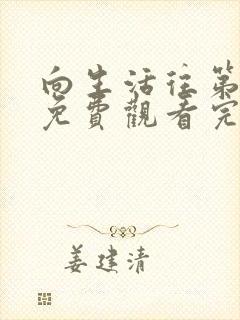 向生活往第
免費觀看完
姜建清